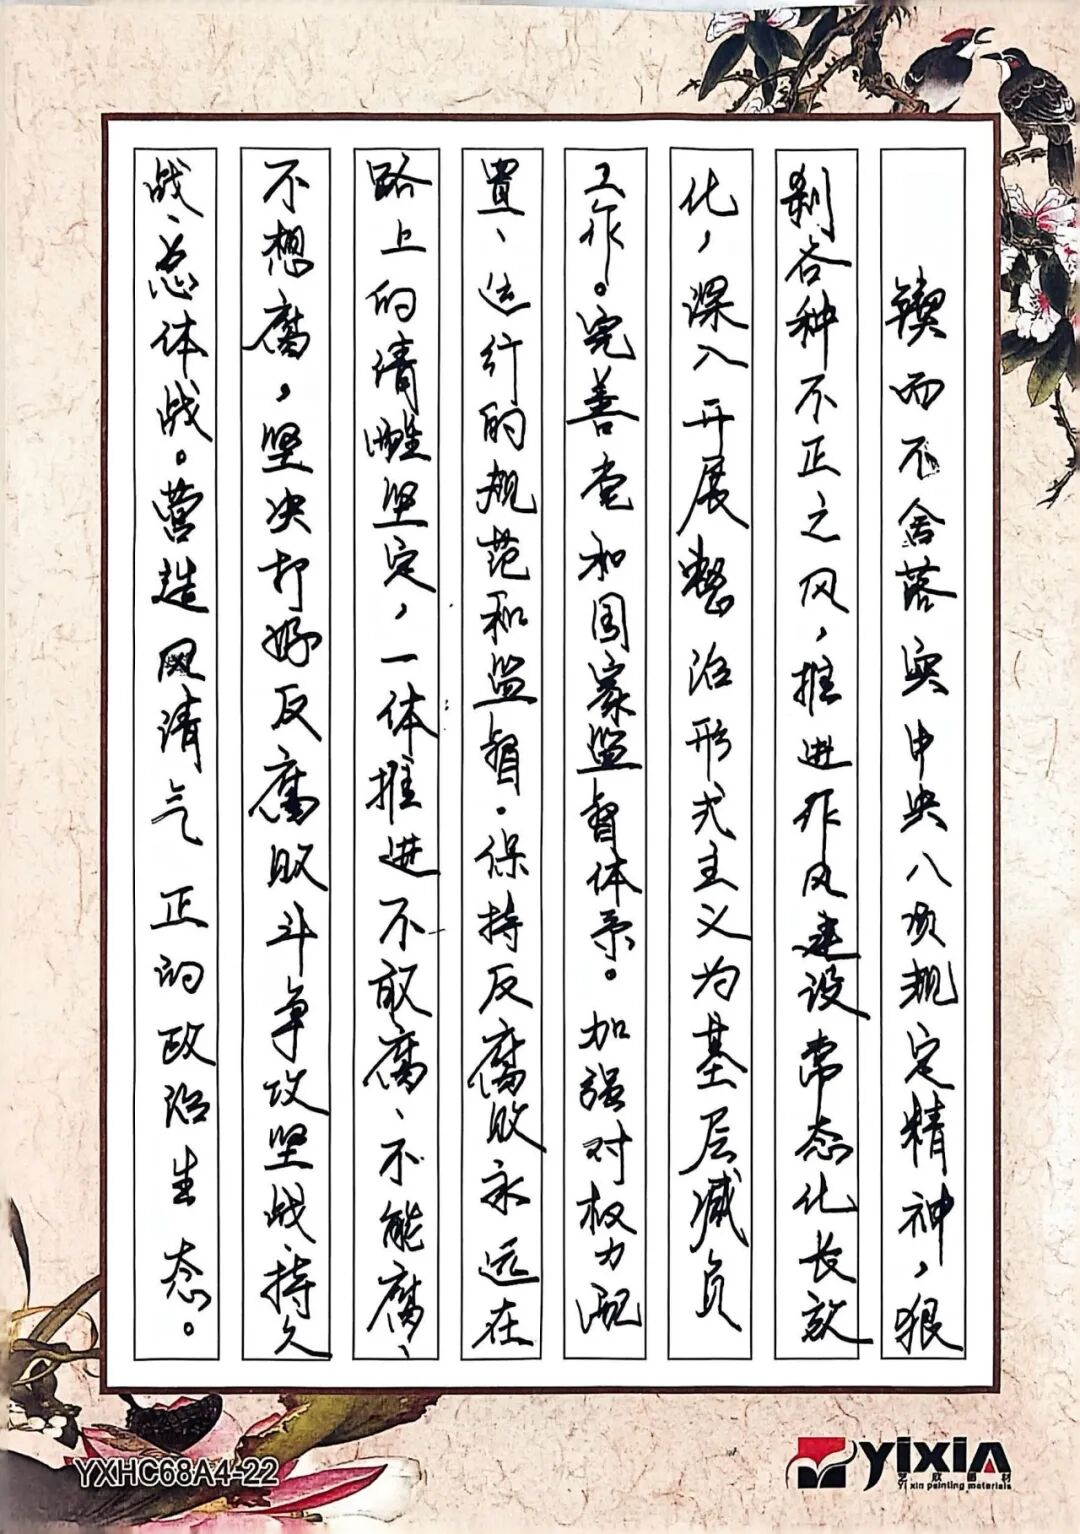 锲而不舍落实中央八项规定精神，狠
刹各种不正之风，推进作风建设常态化长效
化，深入开展整治形式主义为基层减负
工作。完善党和国家监督体系。加强对权力配
置、运行的规范和监督。保持反腐败永远在
路上的清醒坚定，一体推进不敢腐、不能腐、
不想腐，坚决打好反腐败斗争攻坚战、持久
战、总体战。营造风清气正的政治生态。
YXHC68A4-22
yixin
艺欣画材
Yi xin painting materials